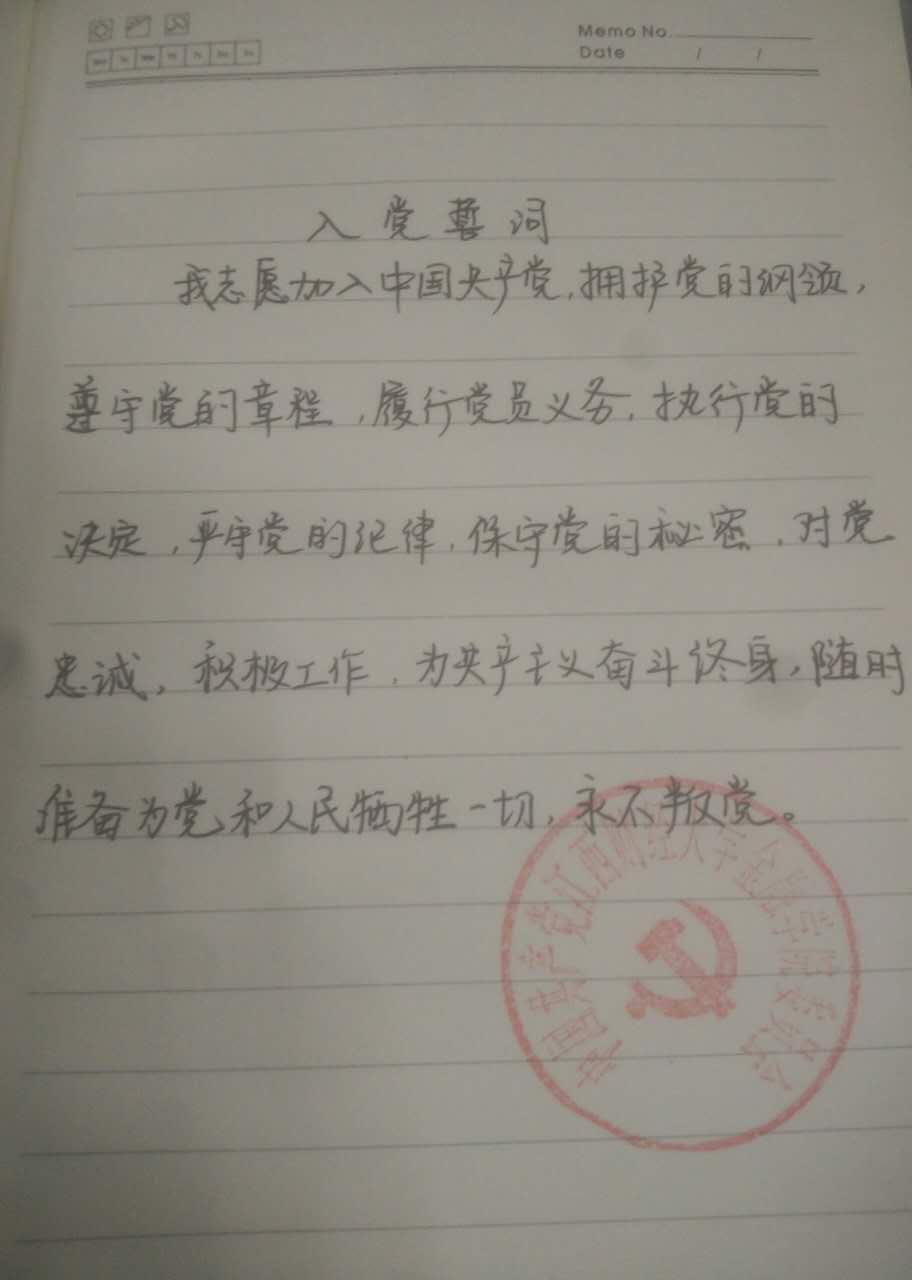 Memo No.
Date / /
入党誓词
我志愿加入中国共产党,拥护党的纲领,
遵守党的章程,履行党员义务,执行党的
决定,严守党的纪律,保守党的秘密,对党
忠诚,积极工作,为共产主义奋斗终身,随时
准备为党和人民牺牲一切,永不叛党。
中国共产党江西财经大学金融学院委员会